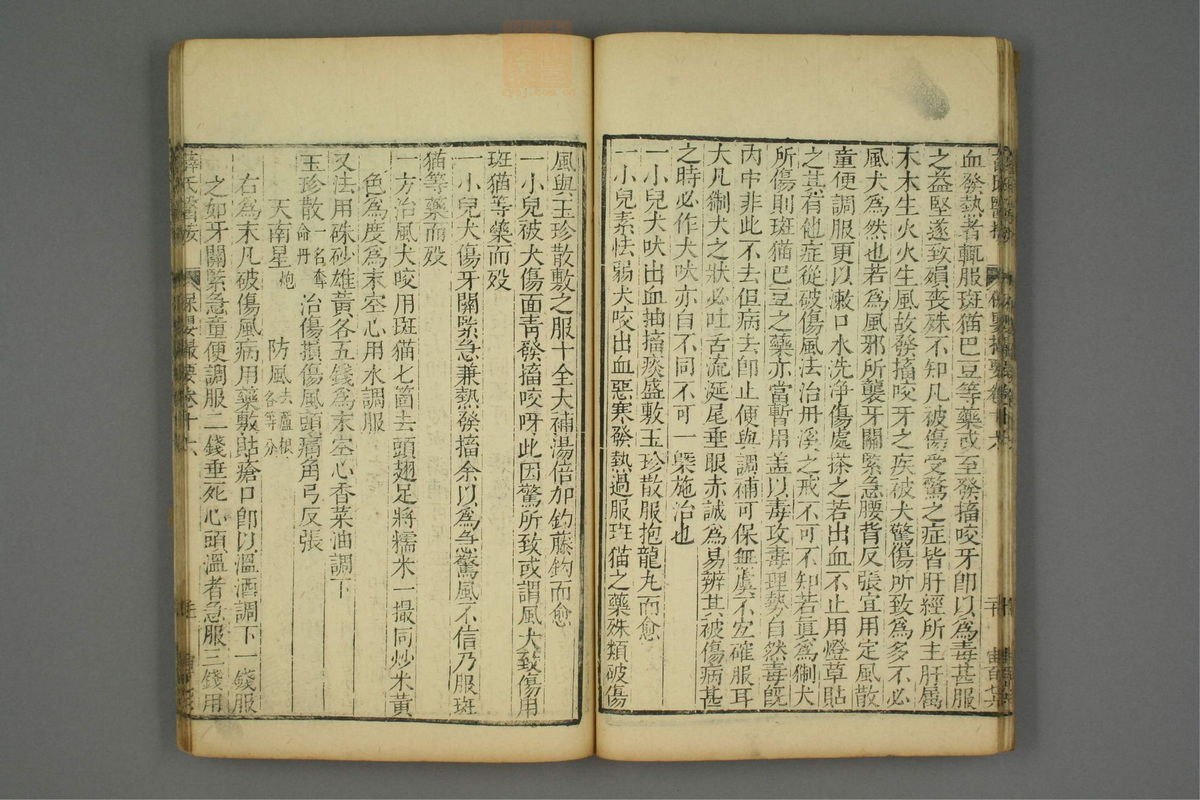 血發熱者輒服斑猫巴豆等藥或至發搐咬牙卽以爲毒甚服
之益堅遂致殞喪殊不知凡被傷受驚之症皆肝經所主肝屬
木木生火火生風故發搐咬牙之疾被犬驚傷所致爲多不必
風犬爲然也若爲風邪所襲牙關緊急腰背反張宜用定風散
童便調服更以漱口水洗淨傷處搽之若出血不止用燈草貼
之其有他症從破傷風法治丹溪之戒不可不知若眞爲猘犬
所傷則斑猫巴豆之藥亦當暫用盖以毒攻毒理勢自然毒旣
內中非此不去但病去卽止便與調補可保無虞不宜確服耳
大凡猘犬之狀必吐舌流涎尾垂眼赤誠爲易辨其被傷病甚
之時必作犬吠亦自不同不可一槩施治也
一小兒犬吠出血抽搐痰盛敷玉珍散服抱龍丸而愈
一小兒素怯弱犬咬出血惡寒發熱過服斑猫之藥殊類破傷
風與玉珍散敷之服十全大補湯倍加釣藤鈎而愈
一小兒被犬傷面靑發搐咬呀此因驚所致或謂風犬致傷用
斑猫等藥而殁
一小兒犬傷牙關緊急兼熱發搐余以爲急驚風不信乃服斑
猫等藥而殁
一方治風犬咬用斑猫七箇去頭翅足將糯米一撮同炒米黃
色爲度爲末空心用水調服
又法用硃砂雄黃各五錢爲末空心香菜油調下
玉珍散一名奪命丹 治傷損傷風頭痛角弓反張
天南星炮 防風去蘆根各等分
右爲末凡破傷風病用藥敷貼瘡口卽以溫酒調下一錢服
之如牙關緊急童便調服二錢垂死心頭溫者急服三錢用
薛氏醫按 保嬰撮要卷十六